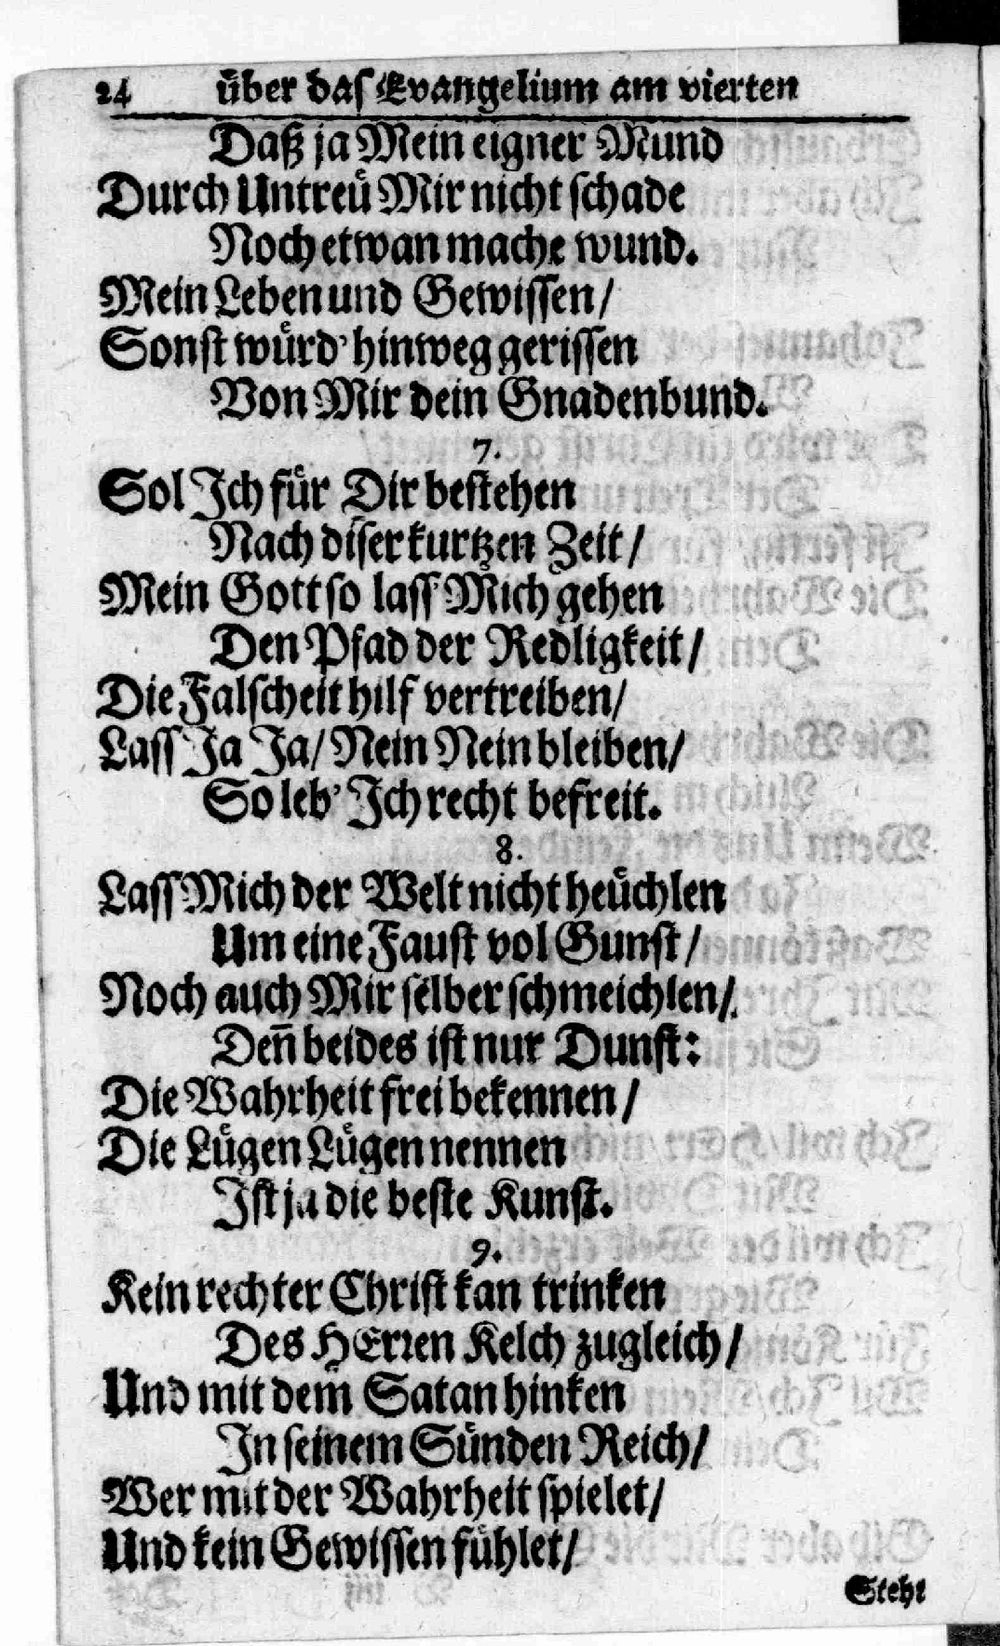 24 über das Evangelium am vierten
Daß ja Mein eigner Mund
Durch Untreü Mir nicht schade
Noch etwan mache wund.
Mein Leben und Gewissen/
Sonst würd' hinweg gerissen
Von Mir dein Gnadenbund.
7.
Sol Ich für Dir bestehen
Nach diser kurtzen Zeit/
Mein Gott so lass' Mich gehen
Den Pfad der Redligkeit/
Die Falscheit hilf vertreiben/
Lass' Ja Ja/ Nein Nein bleiben/
So leb' Ich recht befreit.
8.
Lass' Mich der Welt nicht heüchlen
Um eine Faust vol Gunst/
Noch auch Mir selber schmeichlen/
Deñ beides ist nur Dunst:
Die Wahrheit frei bekennen/
Die Lügen Lügen nennen
Ist ja die beste Kunst.
9.
Kein rechter Christ kan trinken
Des HErren Kelch zugleich/
Und mit dem Satan hinken
In seinem Sünden Reich/
Wer mit der Wahrheit spielet/
Und kein Gewissen fühlet/
Steht